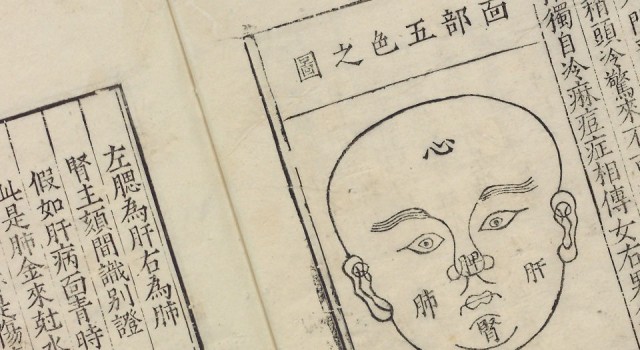 頭冷驚來
獨自冷痳痘症相傳女右
面部五色之圖
心
肝
肺
腎
左腮為肝右為肺
腎主頦間識別證
假如肝病面青時
是肺金來尅水